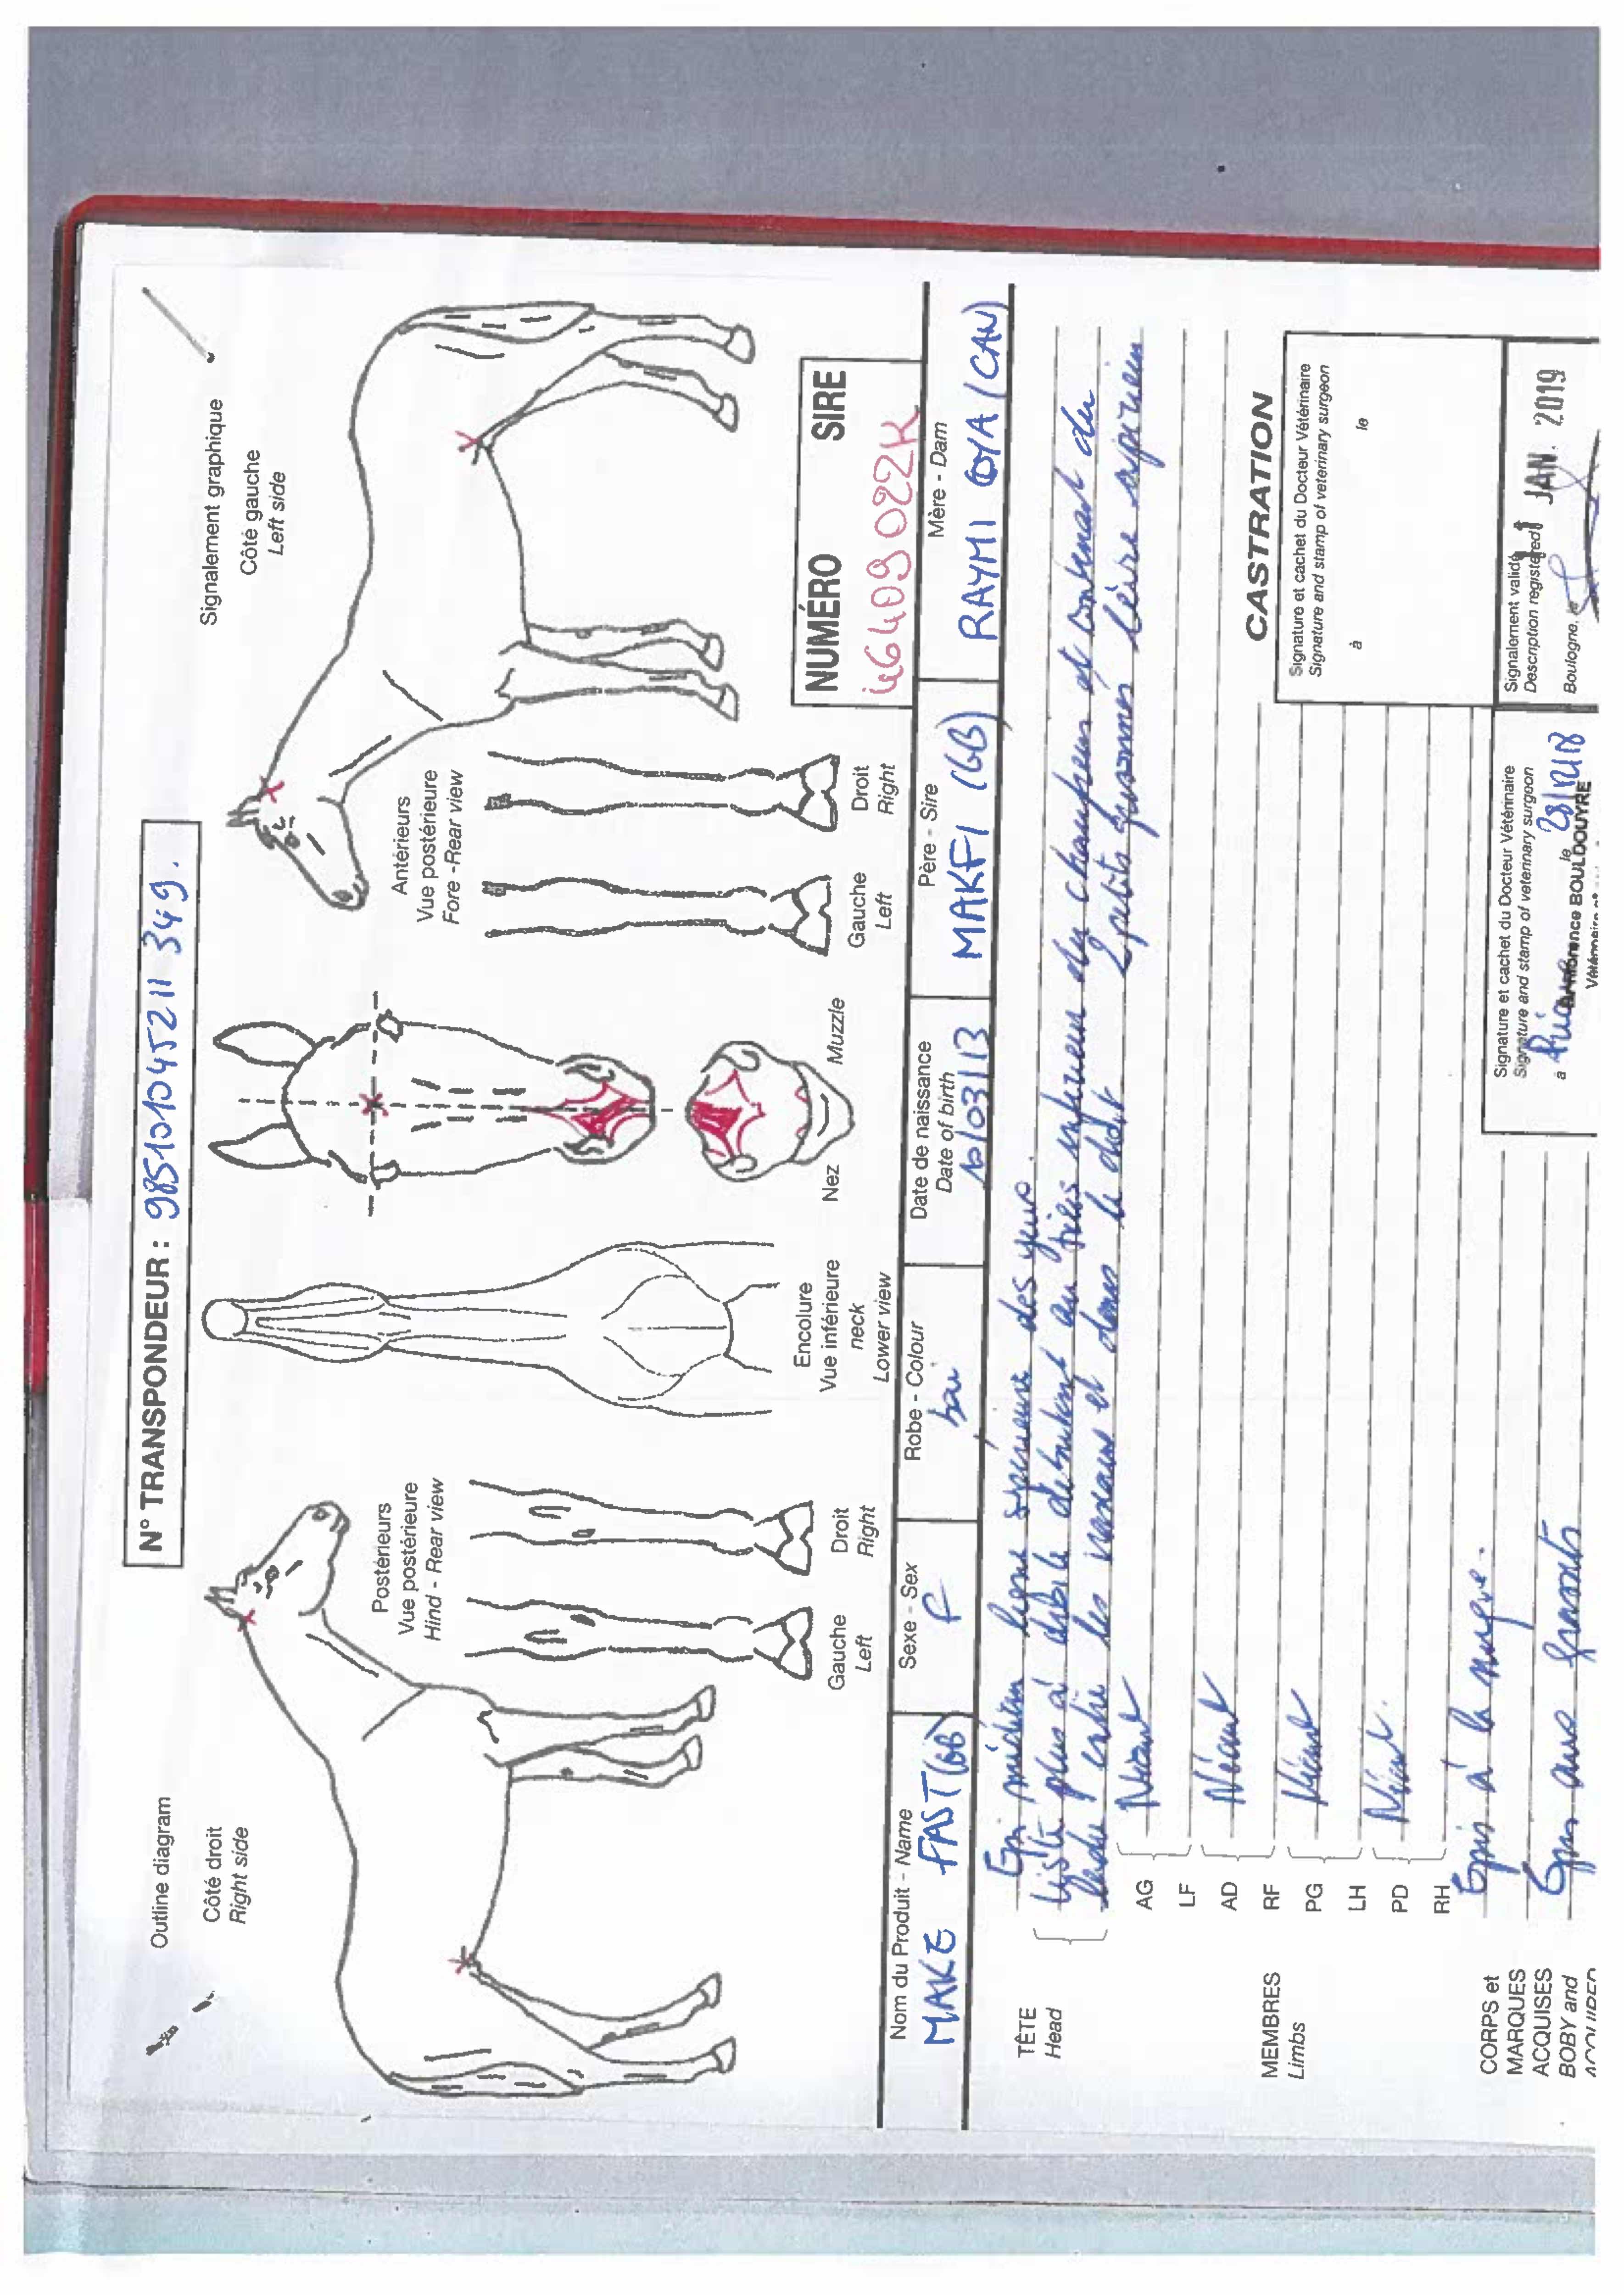 N° TRANSPONDEUR : 985101045211 349.
Outline diagram
Côté droit
Right side
Signalement graphique
Côté gauche
Left side
Postérieurs
Vue postérieure
Hind - Rear view
Gauche
Left
Droit
Right
Encolure
Vue inférieure
neck
Lower view
Nez
Muzzle
Antérieurs
Vue postérieure
Fore - Rear view
Gauche
Left
Droit
Right
NUMÉRO SIRE
46409022K
Nom du Produit - Name
MAKE FAST (GB)
Sexe - Sex
F
Robe - Colour
bai
Date de naissance
Date of birth
16/03/13
Père - Sire
MAKFI (GB)
Mère - Dam
RAYMI COYA (CAN)
TÊTE
Head
Epi médian ligne supérieure des yeux.
Liste plus à débutant au tiers inférieur du chanfrein et contenant du
ladre entre les naseaux et dans le droit 2 petits lèvre supérieure
MEMBRES
Limbs
AG Néant
LF
AD Néant
RF
PG Néant
LH
PD Néant.
RH
CORPS et
MARQUES
ACQUISES
BOBY and
ACQUIRED
Epis à la nuque.
Epis aux grassets
CASTRATION
Signature et cachet du Docteur Vétérinaire
Signature and stamp of veterinary surgeon
à le
Signature et cachet du Docteur Vétérinaire
Signature and stamp of veterinary surgeon
à le 28/12/18
BOULDOUYRE
Signalement validé
Description registered
JAN. 2019
Boulogne, le